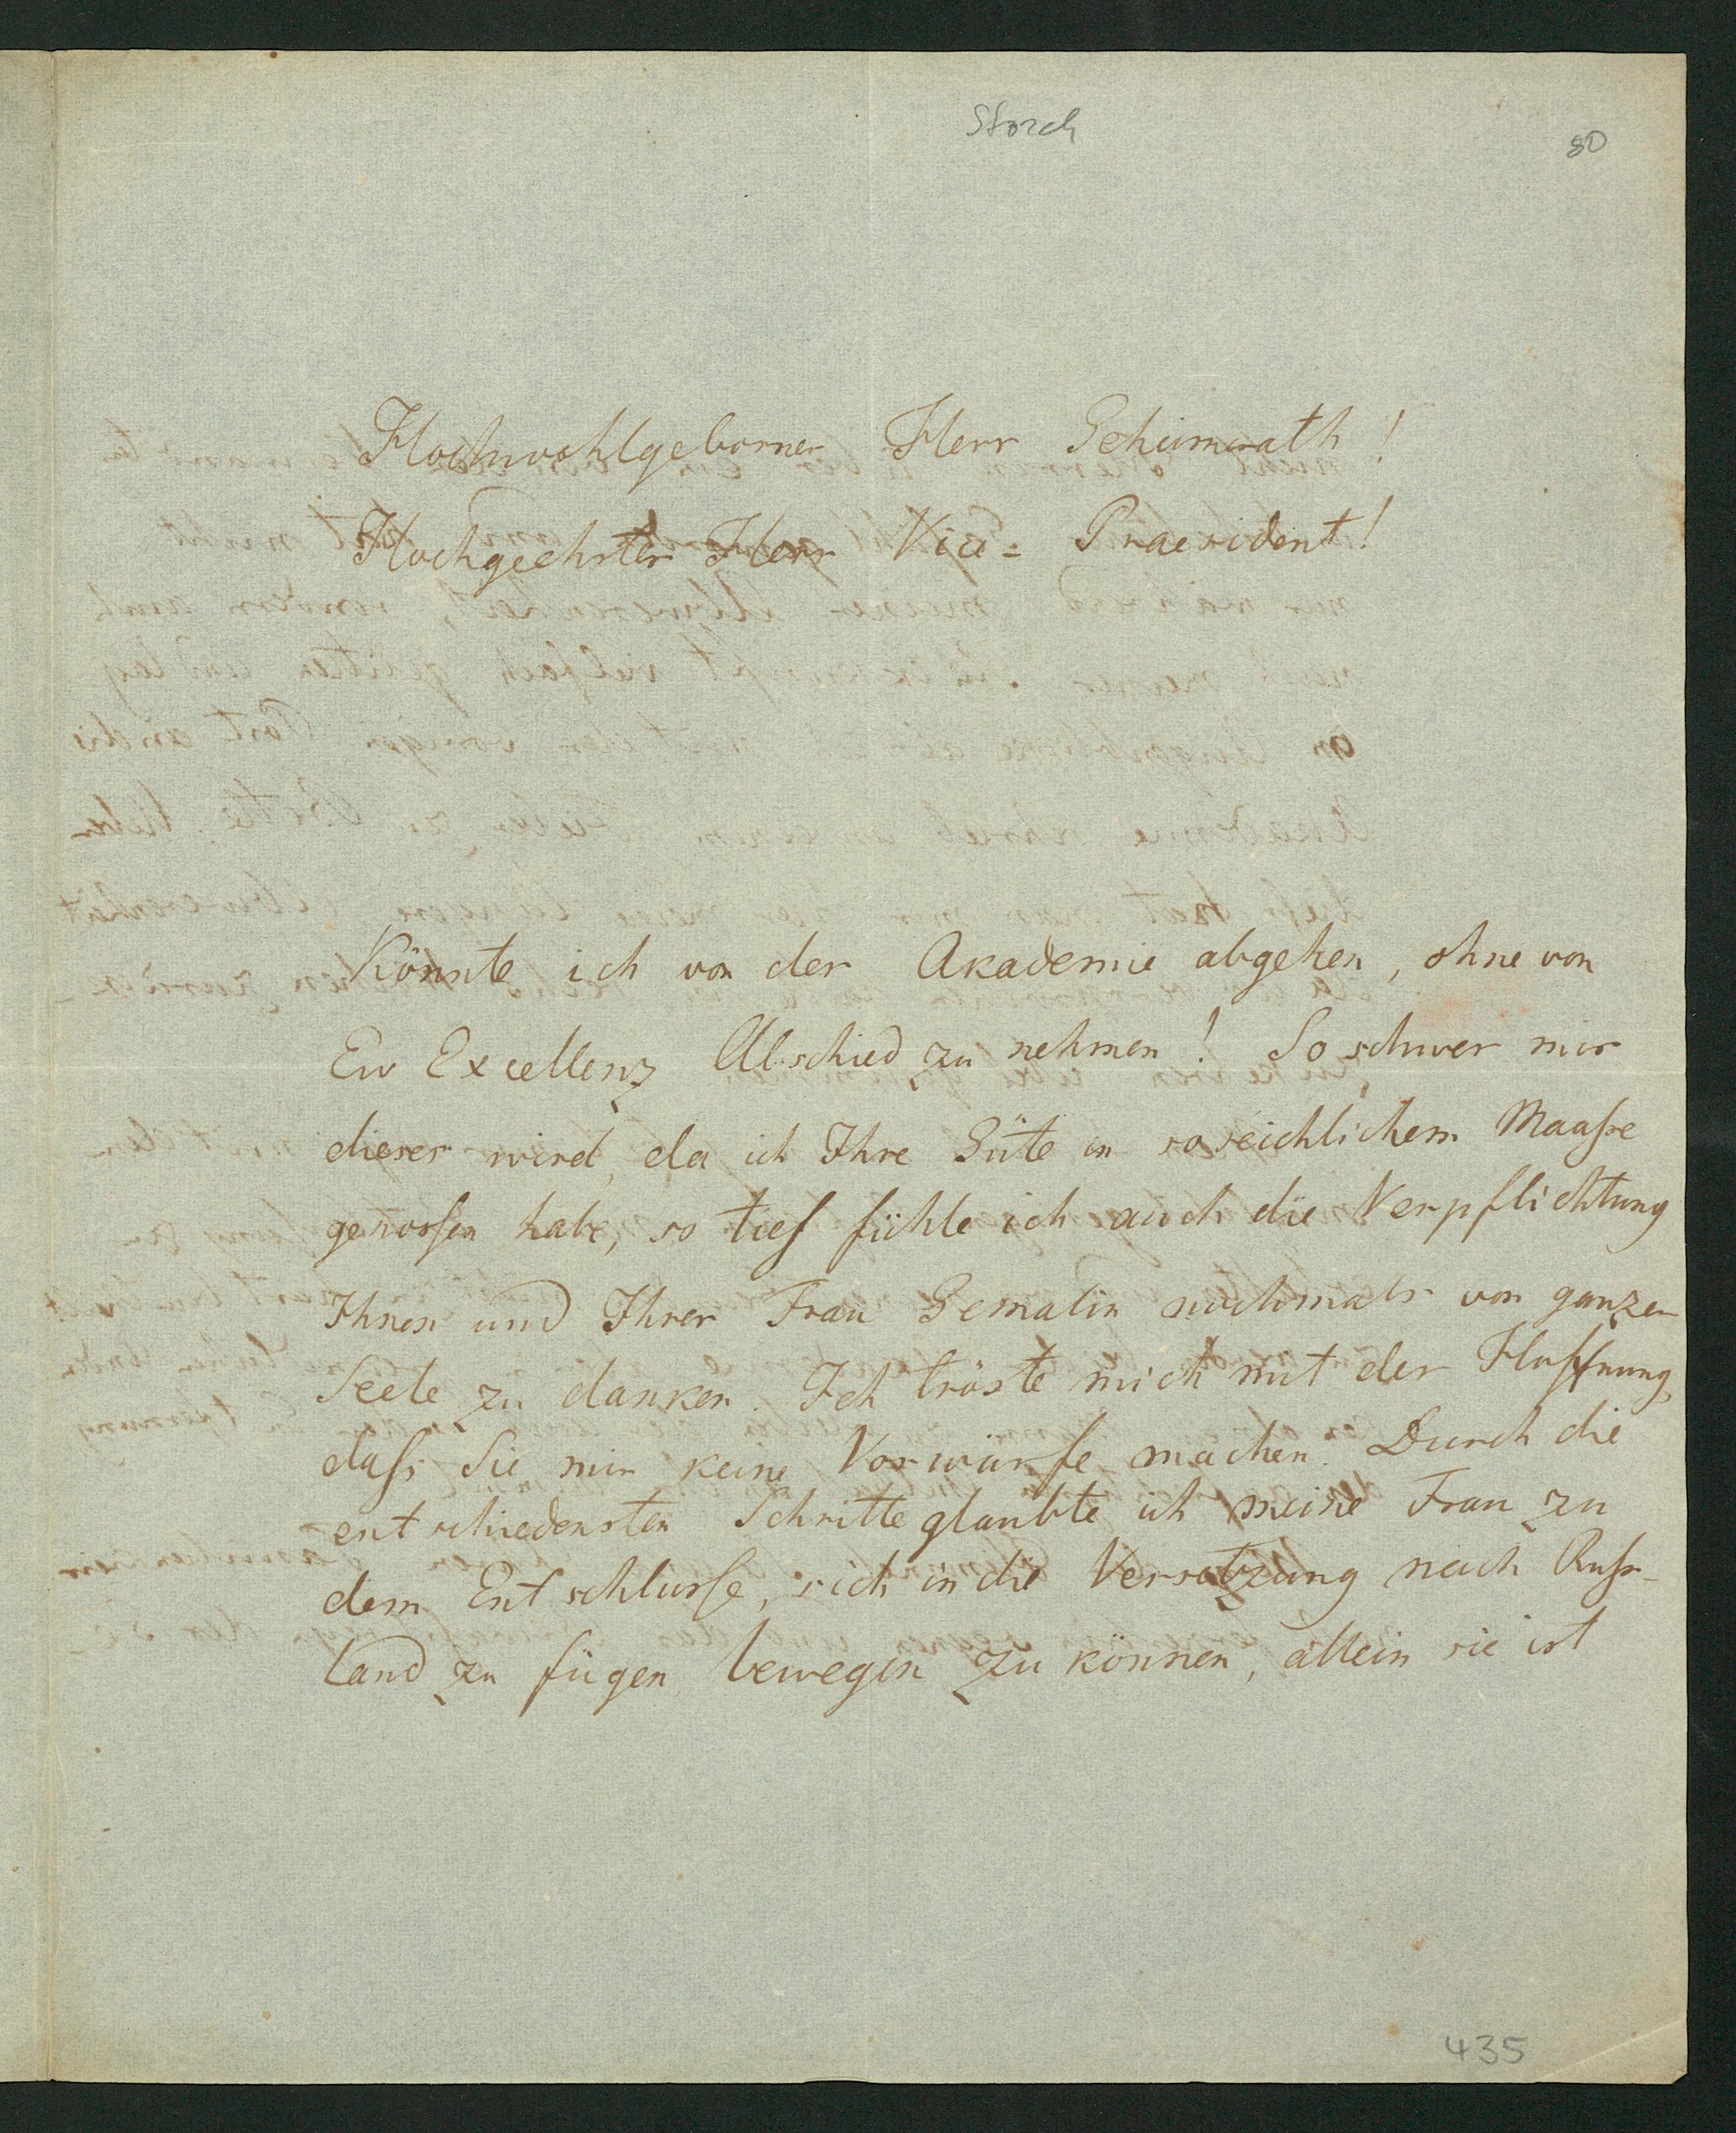 Storch
80
Hochwohlgeborner Herr Geheimrath!
Hochgeehrter Herr Vice= Praesident!
Könnte ich von der Akademie abgehen, ohne von
Ew Excellenz Abschied zu nehmen! So schwer mir
dieser wird, da ich Ihre Güte in so reichlichem Maaße
genoßen habe, so tief fühle ich auch die Verpflichtung
Ihnen und Ihrer Frau Gemalin nochmals von ganzer
Seele zu danken. Ich tröste mich mit der Hoffnung,
daß Sie mir keine Vorwürfe machen. Durch die
entschiedensten Schritte glaubte ich meine Frau zu
dem Entschluße, sich in die Versetzung nach Ruß-
land zu fügen bewegen zu können, allein sie ist
435